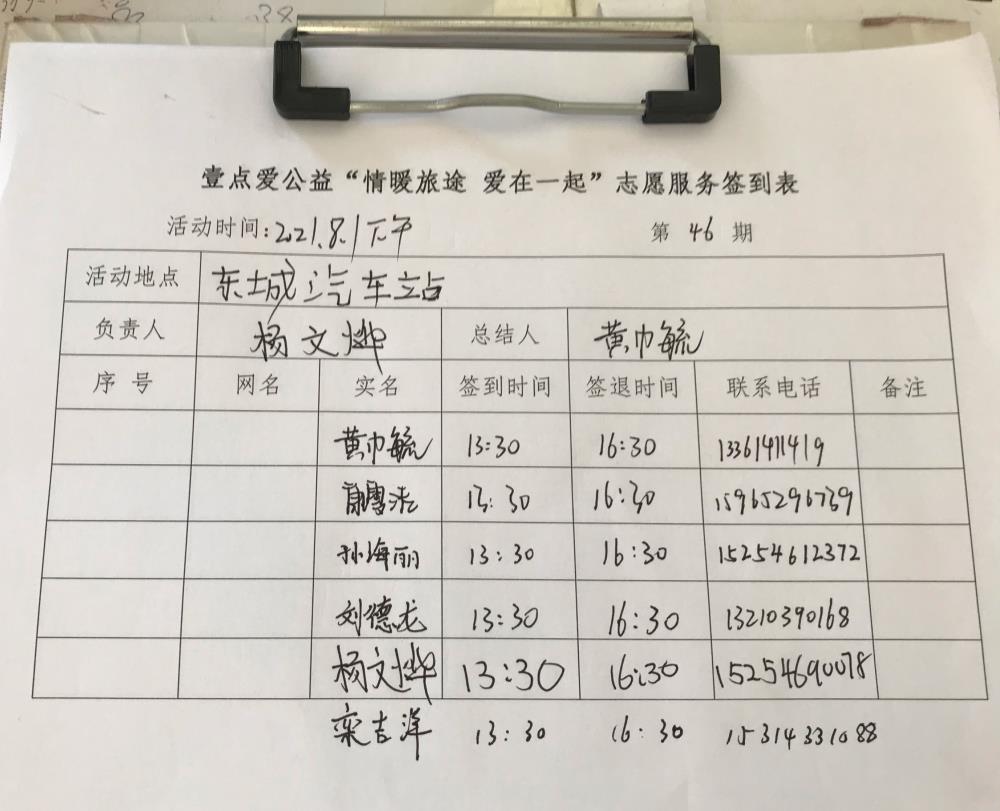 壹点爱公益“情暖旅途 爱在一起”志愿服务签到表
活动时间:2021.8.1下午 第 46 期
活动地点 东城汽车站
负责人 杨文烨 总结人 黄巾毓
序号 网名 实名 签到时间 签退时间 联系电话 备注
黄巾毓 13:30 16:30 13361411419
13:30 16:30 15965296739
孙海丽 13:30 16:30 15254612372
刘德龙 13:30 16:30 13210390168
杨文烨 13:30 16:30 15254690078
栾吉洋 13:30 16:30 15314331088